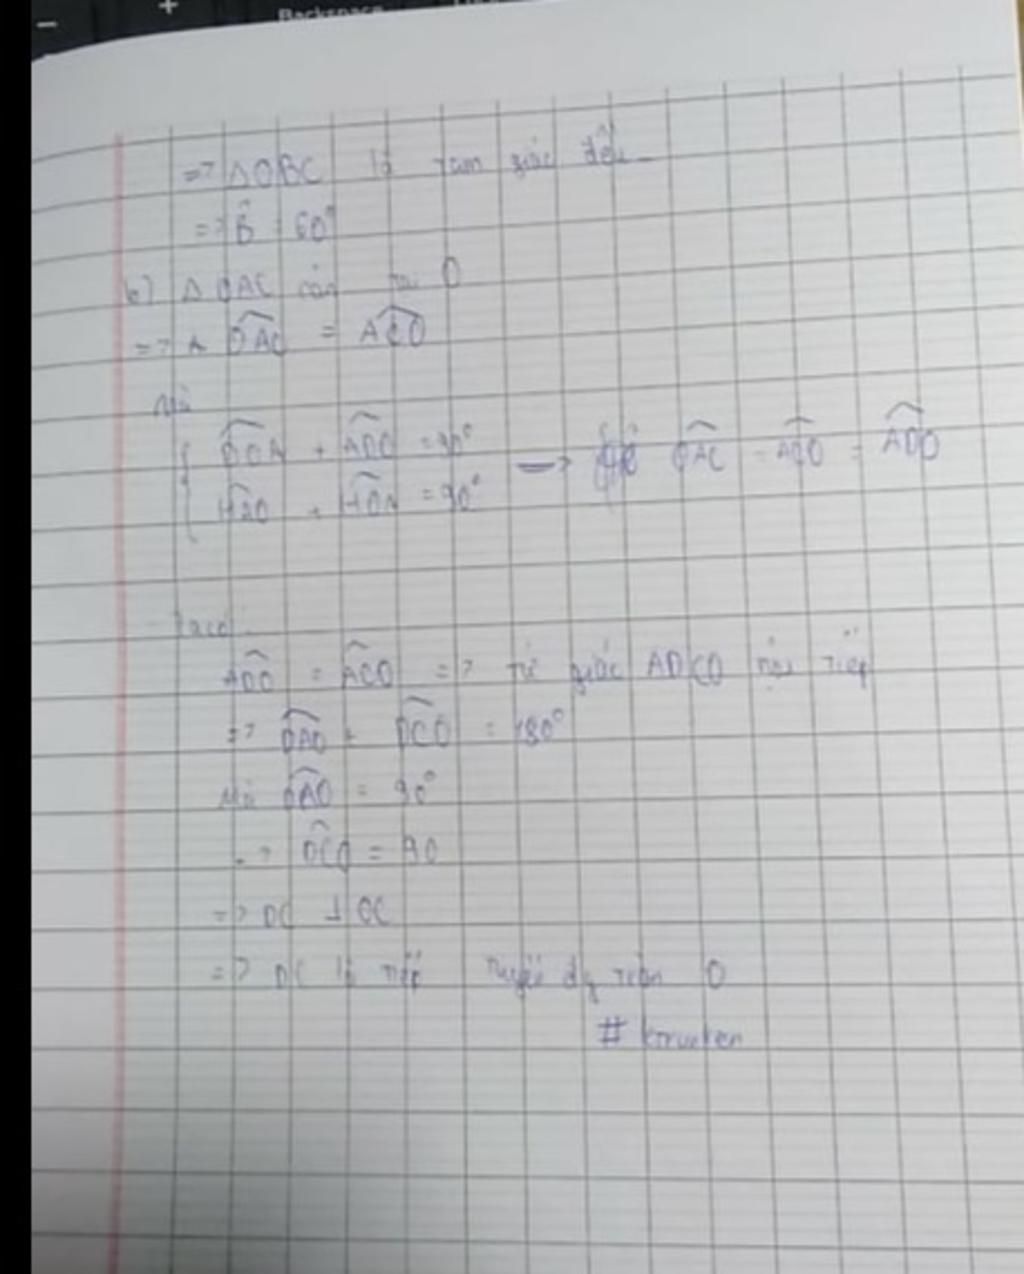 Backspace
=> ΔOBC là tam giác đều
=> B̂ = 60°
b) ΔOAC cân tại O
=> OAC = ACO
Mà
DOA + ADO = 90°
HAO + HOA = 90° -> OAC = ACO = ADO
Ta có:
ADO = ACO => Tứ giác ADCO nội tiếp
=> DAO + DCO = 180°
Mà DAO = 90°
=> DCO = 90
=> DC ⊥ OC
=> DC là tiếp tuyến đg tròn O
#